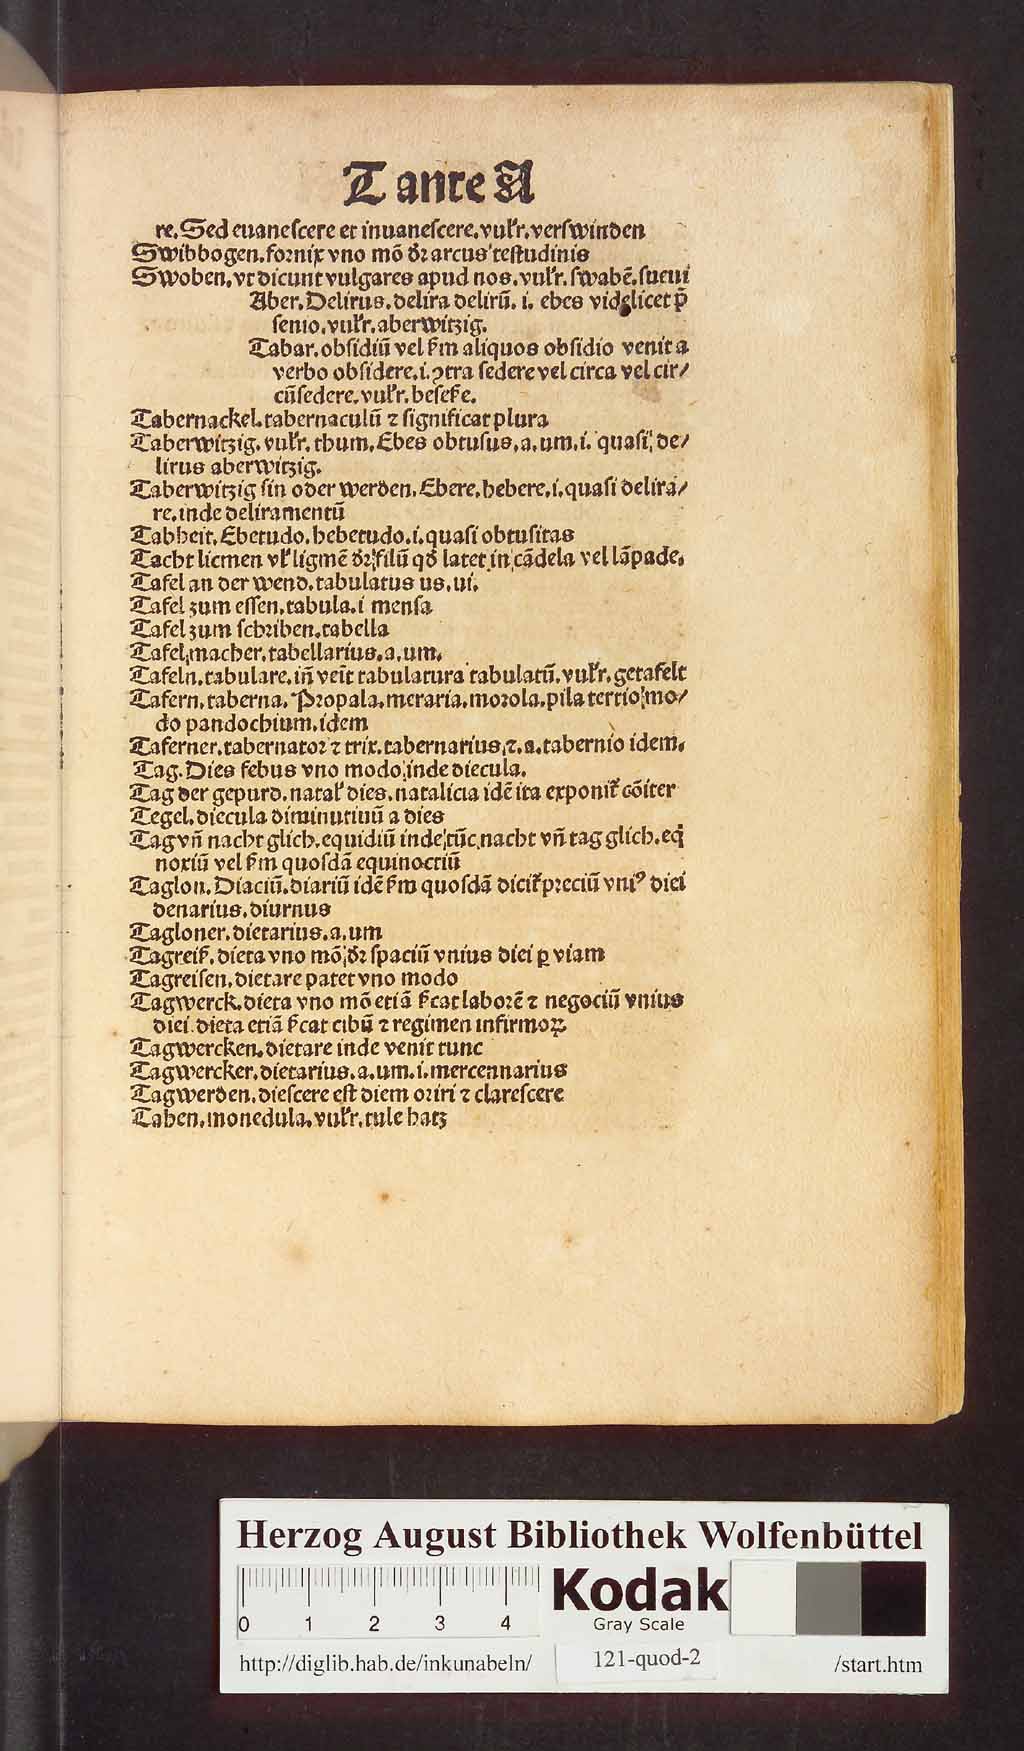 T ante A
re. Sed euanescere et inuanescere. vulr̃. verswinden
Swibbogen. fornix vno mõ dr̃ arcus testudinis
Swoben. vt dicunt vulgares apud nos. vulr̃. swabẽ. sueui
Aber. Delirus. delira delirũ. i. ebes videlicet p̃
senio. vulr̃. aberwitzig.
Tabar. obsidiũ vel s̃m aliquos obsidio venit a
verbo obsidere. i. ꝯtra sedere vel circa vel cir/
cũsedere. vulr̃. beseſſe.
Tabernackel. tabernaculũ ⁊ significat plura
Taberwitzig. vulr̃. thum. Ebes obtusus. a. um. i. quasi de/
lirus aberwitzig.
Taberwitzig sin oder werden. Ebere. hebere. i. quasi delira/
re. inde deliramentũ
Tabheit. Ebetudo. hebetudo. i. quasi obtusitas
Tacht licmen vl̃ ligmẽ dr̃ filũ qd̃ latet in cãdela vel lãpade.
Tafel an der wend. tabulatus us. ui.
Tafel zum essen. tabula. i mensa
Tafel zum schriben. tabella
Tafel macher. tabellarius. a. um.
Tafeln. tabulare. iñ veĩt tabulatura tabulatũ. vulr̃. getafelt
Tafern. taberna. Propala. meraria. morola. pila tertio mo/
do pandochium. idem
Taferner. tabernator ⁊ trix. tabernarius. ⁊. a. tabernio idem.
Tag. Dies febus vno modo inde diecula.
Tag der gepurd. natal̃ dies. natalicia idẽ ita exponit̃ cõiter
Tegel. diecula diminutiuũ a dies
Tag vñ nacht glich. equidiũ inde tũc nacht vñ tag glich. eq̃
noxiũ vel s̃m quosdã equinoctiũ
Taglon. Diaciũ. diariũ idẽ s̃m quosdã dicit̃ preciũ vniꝰ diei
denarius. diurnus
Tagloner. dietarius. a. um
Tagreiß. dieta vno mõ dr̃ spaciũ vnius diei ꝑ viam
Tagreisen. dietare patet vno modo
Tagwerck. dieta vno mõ etiã s̃cat laborẽ ⁊ negociũ vnius
diei dieta etiã s̃cat cibũ ⁊ regimen infirmoꝝ.
Tagwercken. dietare inde venit tunc
Tagwercker. dietarius. a. um. i. mercennarius
Tagwerden. diescere est diem oriri ⁊ clarescere
Tahen. monedula. vulr̃. tule hatz
Herzog August Bibliothek Wolfenbüttel
0 1 2 3 4
Kodak
Gray Scale
http://diglib.hab.de/inkunabeln/
121-quod-2
/start.htm